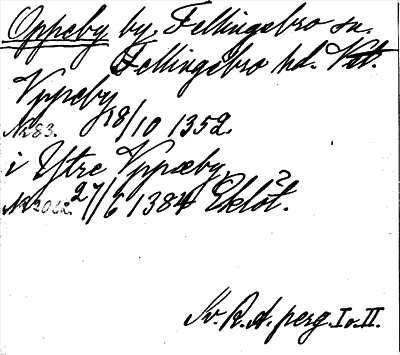 Oppeby by, Fellingsbro sn.
Fellingsbro hd. Vstl.
Vppeby 18/10 1352.
Nr 83.
i Ytre Vppæby,
27/6 1384 Eklöt.
Sv. R. A. perg. I o. II.